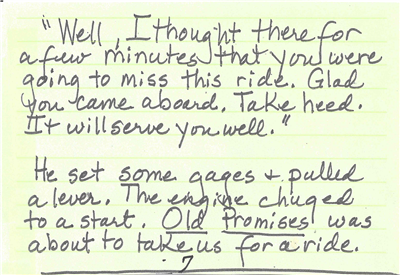 "Well, I thought there for
a few minutes that you were
going to miss this ride. Glad
you came aboard. Take heed.
It will serve you well."
He set some gages + pulled
a lever. The engine chuged
to a start. Old Promises was
about to take us for a ride.
7